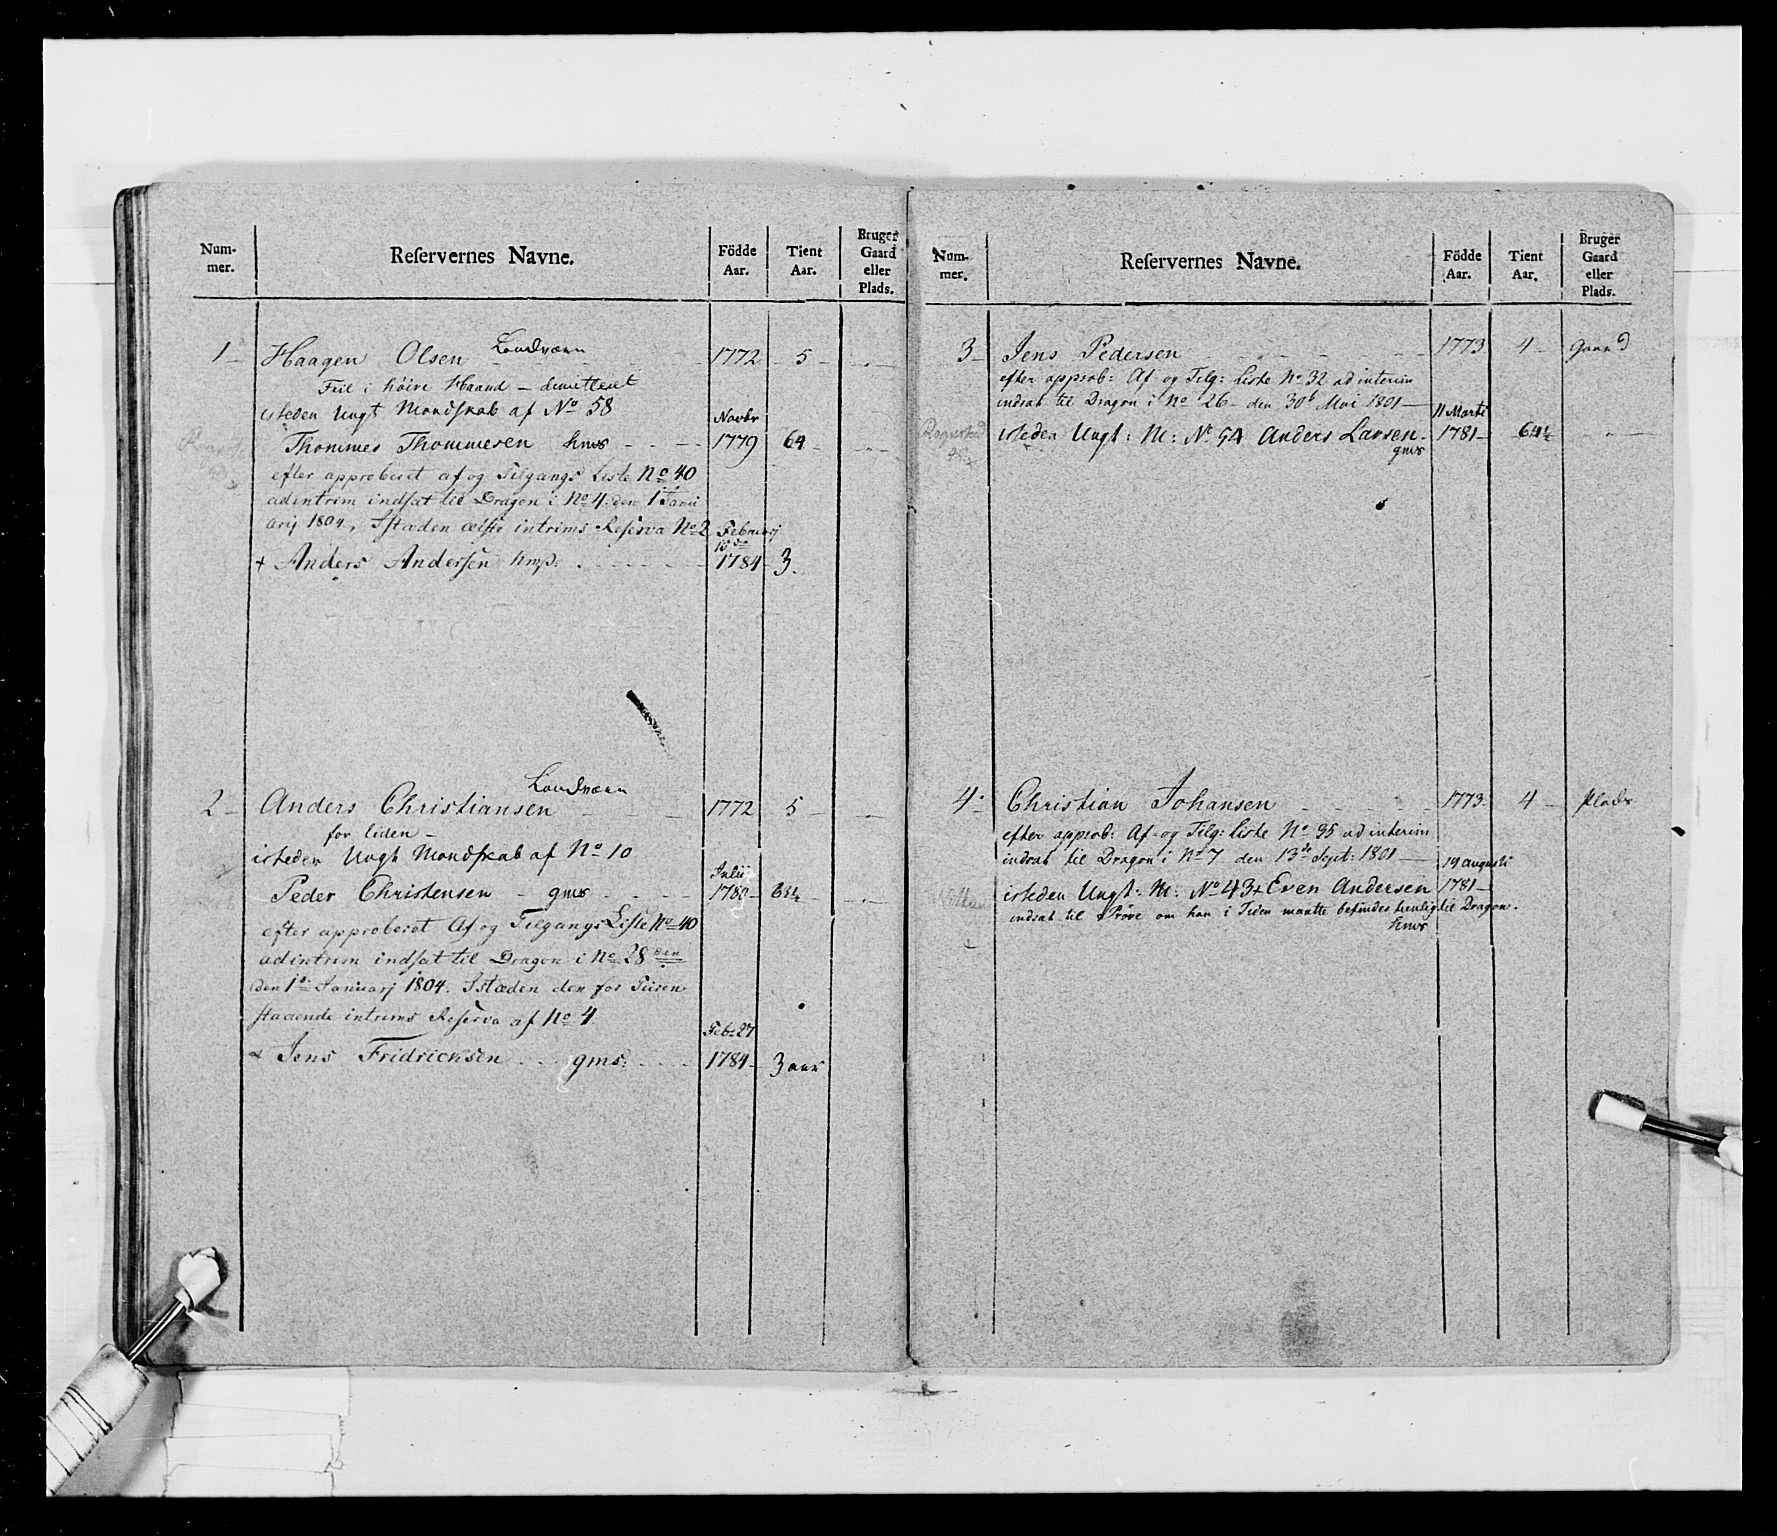 Num-
mer.
Reſervernes Navne.
Födde
Aar.
Tient
Aar.
Bruger
Gaard
eller
Plads.
1 Haagen Olsen Landværn 1772 5
Feil i höire Haand - dimitteret
isteden Ungt Mandſkab af No 58
Novbr
Thommes Thommesen 1779 64
efter approberet af og Tilgangs Liste No 40
ad intrim indſat til Dragon i No 4. den 1 Janu
arij 1804, Istæden intrims Reſerva No 2 Februarij
+ Anders Anderſen 1784 3.
2 Anders Christiansen Landværn 1772 5
for liden
isteden Ungt Mandſkab af No 10
Julii
Peder Christensen - gms 1780
efter approberet Af og Tilgangs Liſte No 40
ad intrim indſat til Dragon i No 28
den 1 Januarj 1804. Istæden den for Tiiden
staaende intrims Reſerva af No 4
Feb. 27
Jens Fridricksen gms: 1784 3 aar
Num-
mer.
Reſervernes Navne.
Födde
Aar.
Tient
Aar.
Bruger
Gaard
eller
Plads.
3 Jens Pedersen 1773 4 Gaard
efter approb: Af og Tilg: Liste No 32 ad interim
indsat til Dragon i No 26 den 30 Mai 1801
11 Marti
isteden Ungt: M: No 54 Anders Larsen 1781 64½
gms
4 Christian Johansen 1773 4 Plads
efter approb: Af og Tilg: Liste No 35 ad interim
indsat til Dragon i No 7 den 13de Sept: 1801
19 Augusti
isteden Ungt: M: No 43 + Even Andersen 1781
indsat til Pröve om han i Tiden maatte befindes tienlig til Dragon.